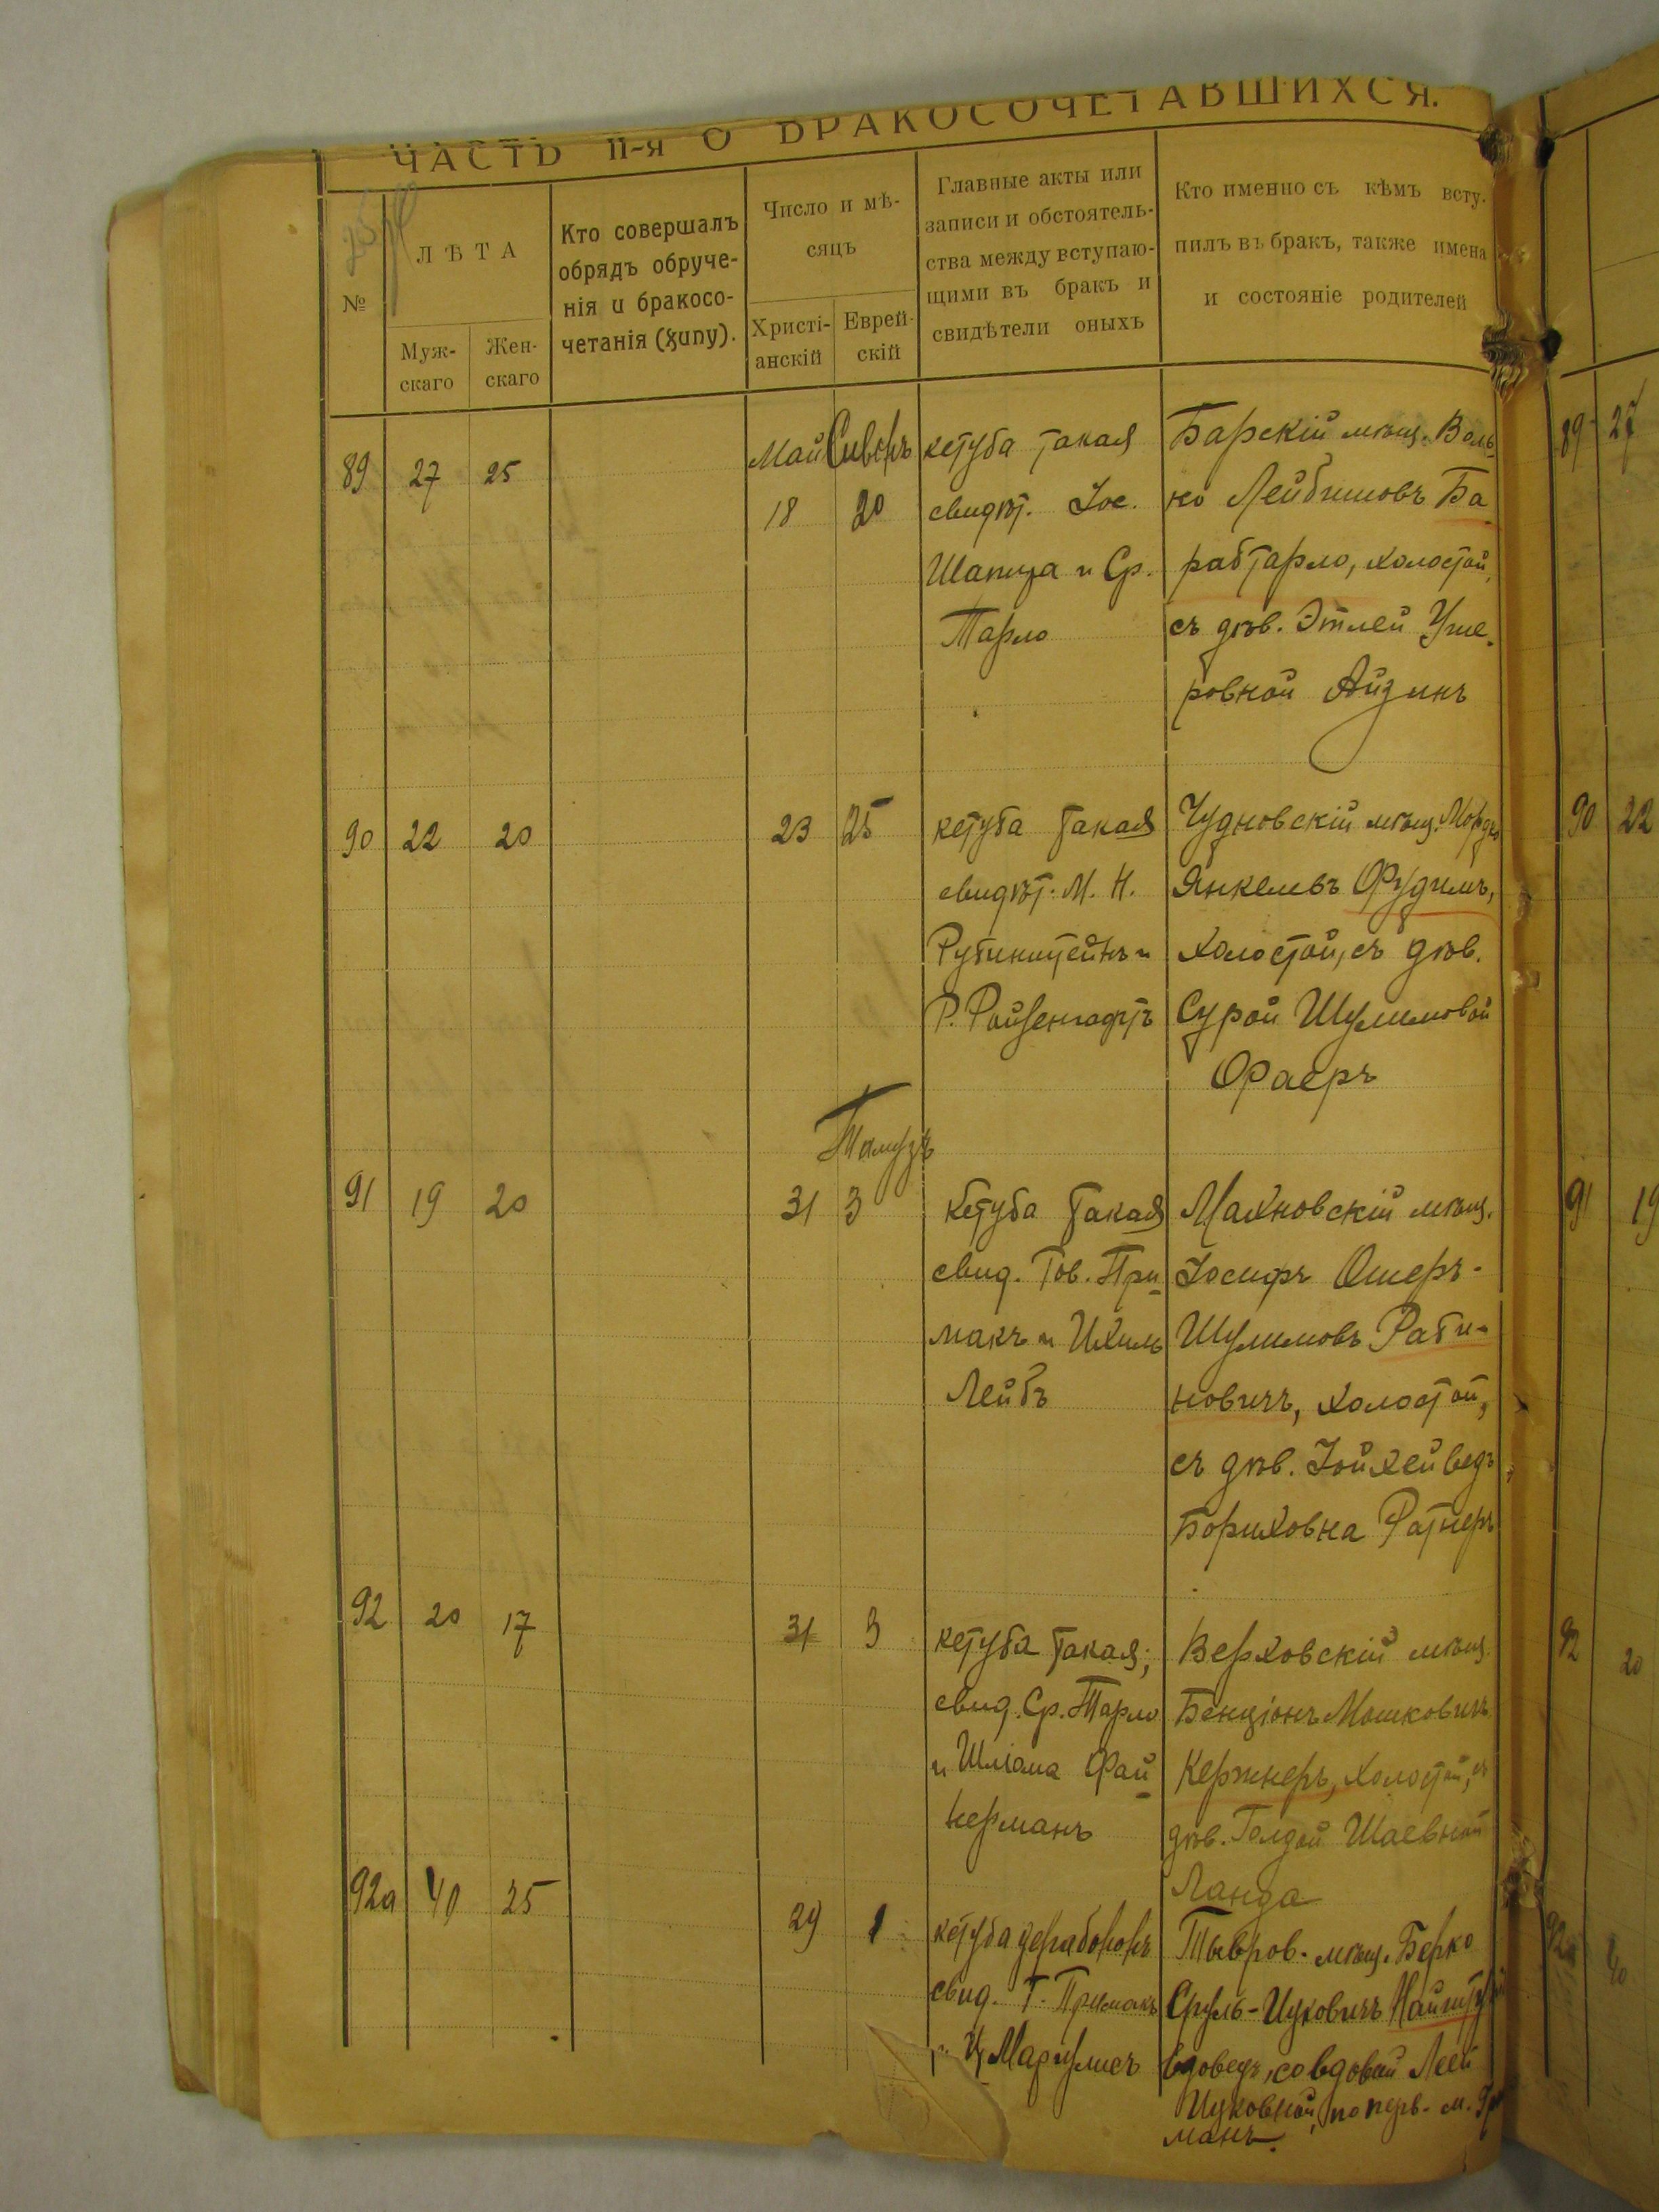 ЧАСТЬ II-я О БРАКОСОЧЕТАВШИХСЯ.
№
ЛѢТА
Муж-
скаго
Жен-
скаго
Кто совершалъ
обрядъ обруче-
нія и бракосо-
четанія (хупу).
Число и мѣ-
сяцъ
Христі-
анскій
Еврей-
скій
Главные акты или
записи и обстоятель-
ства между вступаю-
щими въ бракъ и
свидѣтели оныхъ
Кто именно съ кѣмъ всту-
пилъ въ бракъ, также имена
и состояніе родителей
89 27 25
Май Сивонъ
18 20
кетуба такая
свидѣт. Іос.
Шапира и Ср.
Тарло
Барскій мѣщ. Воль
ко Лейбишовъ Ба
рабтарло, холостой,
съ дѣв. Этлей Уше-
ровной Айзинъ
90 22 20
23 25
кетуба такая
свидѣт. М. Н.
Рубинштейнъ и
Р. Ройзенгафтъ
Чудновскій мѣщ. Мордко
Янкелевъ Фудимъ,
холостой, съ дѣв.
Сурой Шулимовой
Фраеръ
Тамузъ
91 19 20
31 3
Кетуба такая
свид. Тов. При-
макъ и Ихиль
Лейбъ
Махновскій мѣщ.
Іосифъ Ошеръ-
Шулимовъ Раби-
новичъ, холостой,
съ дѣв. Іойхейведъ
Бориховна Ратнеръ
92 20 17
31 3
кетуба такая;
свид. Ср. Тарло
и Шліома Фай-
нерманъ
Верховскій мѣщ.
Бенціонъ Мошковичъ
Кержнеръ, холостой, съ
дѣв. Голдой Шаевной
Ланда
92а 40 25
29 1
кетуба
свид. Т. Примакъ
и Маргулисъ
Тывров. мѣщ. Берко
Сруль-Ицковичъ
вдовецъ, со вдовой Леей
Ицковной, по перв. м.
манъ.
89 27
90 22
91 19
92 20
92а 40